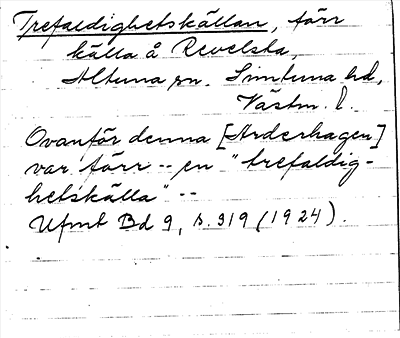 Trefaldighetskällan, förr
källa å Revelsta,
Altuna sn. Simtuna hd,
Västm. l.
Ovanför denna [Arderhagen]
var förr -- en "trefaldig-
hetskälla" --
Ufmt Bd 9, s. 319 (1924).